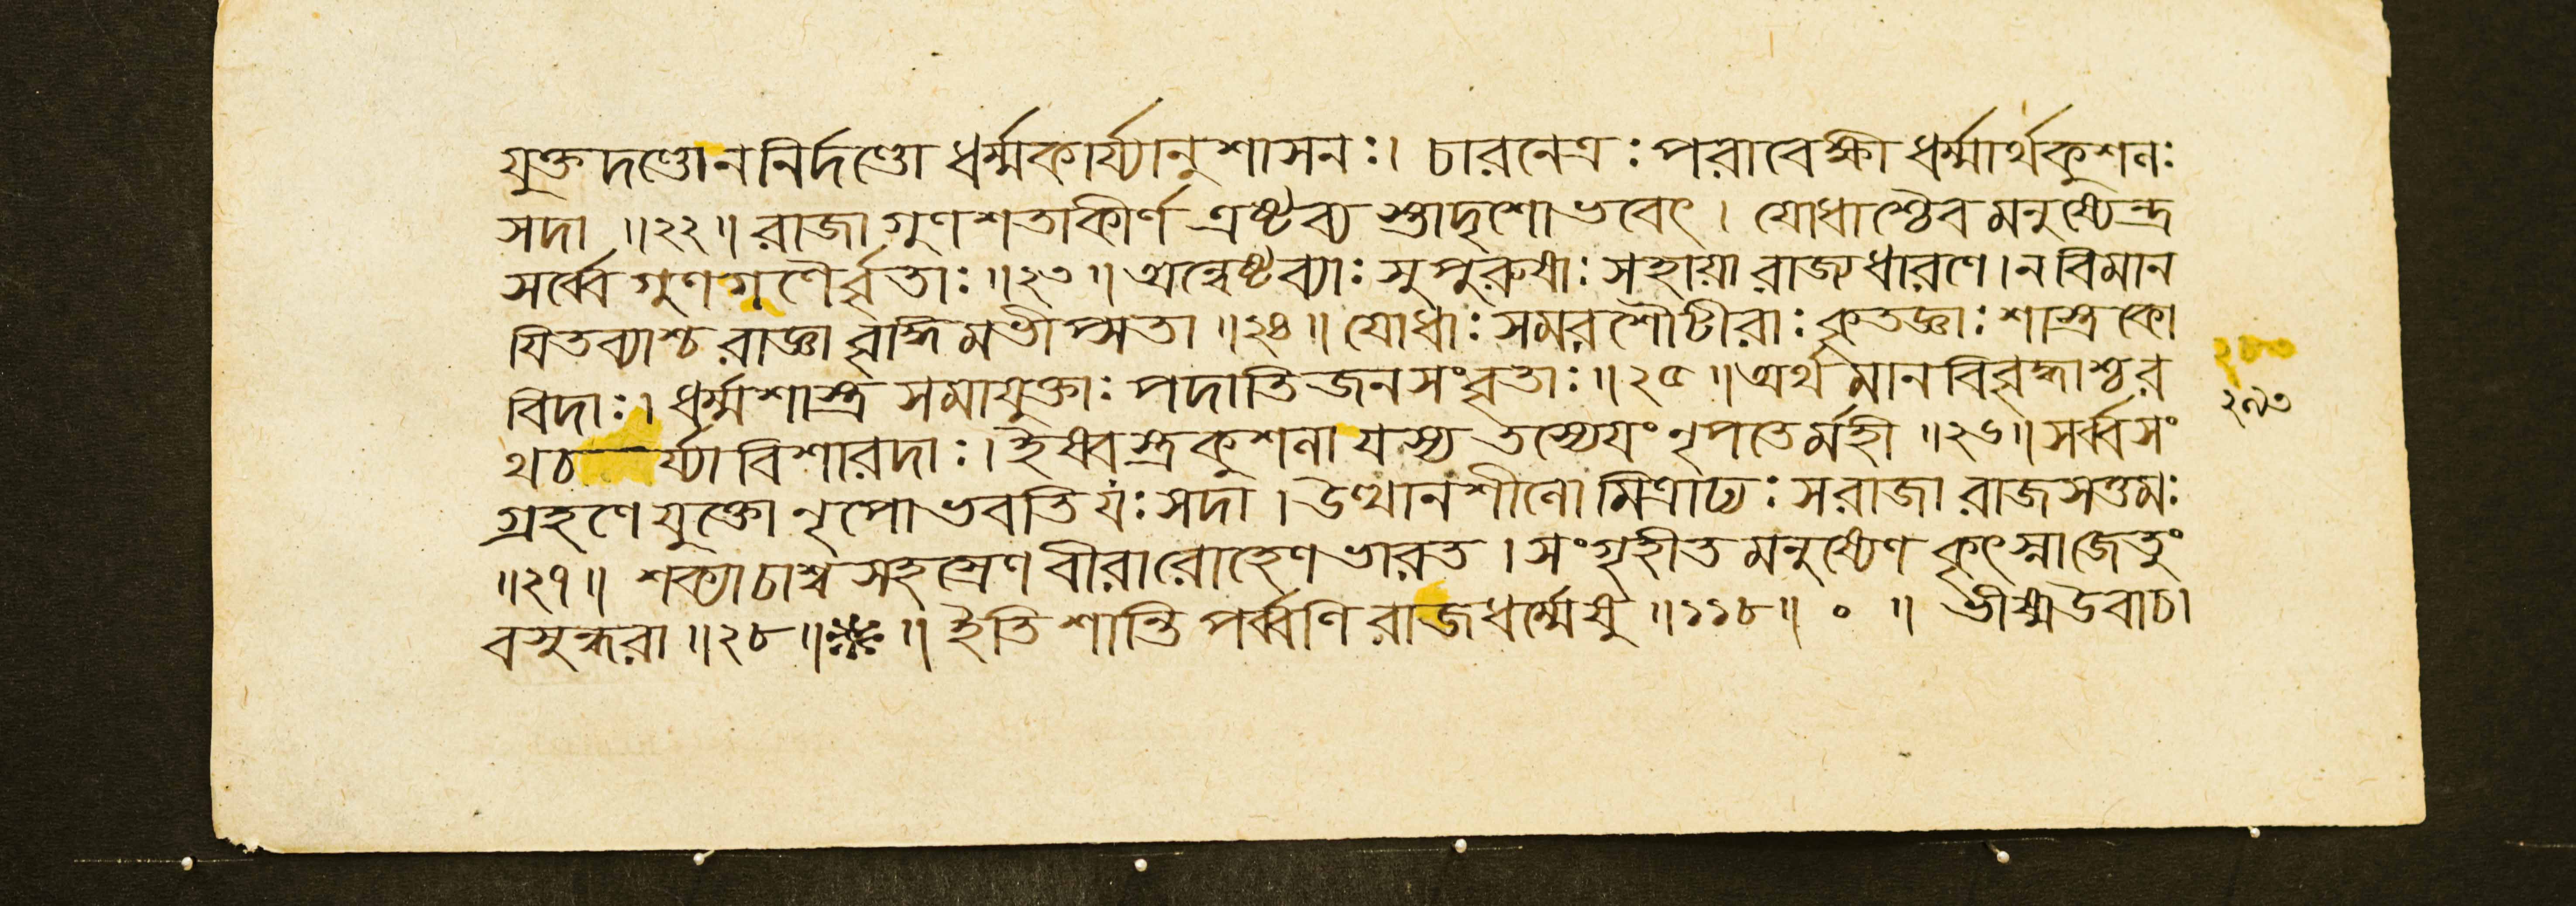 যুক্তদণ্ডোননির্দণ্ডো ধর্ম্মকার্য্যানুশাসনঃ। চারনেত্রঃ পরাবেক্ষী ধর্ম্মার্থকুশলঃ
সদা ॥২২॥ রাজা গুণশতাকীর্ণ এষ্টব্য স্তাদৃশো ভবেৎ। যোধাশ্চৈব মনুষ্যেন্দ্র
সর্ব্বে গুণগণৈর্ব্বৃতাঃ ॥২৩॥ অন্বেষ্টব্যাঃ সুপুরুষাঃ সহায়া রাজ্যধারণে। ন বিমান
যিতব্যাশ্চ রাজ্ঞা বৃদ্ধিমভীপ্সতা ॥২৪॥ যোধাঃ সমরশৌটীরাঃ কৃতজ্ঞাঃ শাস্ত্রকো
বিদাঃ। ধর্ম্মশাস্ত্র সমাযুক্তাঃ পদাতিজনসংবৃতাঃ ॥২৫॥ অর্থমানবিবৃদ্ধাশ্চ র
থচর্য্যাবিশারদাঃ। ইষ্বস্ত্রকুশলা যস্য তস্যেয়ং নৃপতের্মহী ॥২৬॥ সর্ব্বসং
গ্রহণে যুক্তো নৃপো ভবতি যঃ সদা। উত্থানশীলো মিত্রাঢ্যঃ স রাজা রাজসত্তমঃ
॥২৭॥ শক্যা চাশ্ব সহস্রেণ বীরারোহেণ ভারত। সংগৃহীত মনুষ্যেণ কৃৎস্না জেতুং
বসুন্ধরা ॥২৮॥ ॥ ইতি শান্তিপর্ব্বণি রাজধর্ম্মেষু ॥১১৮॥ ০ ॥ ভীষ্মউবাচ।
২৮০
২৯৩